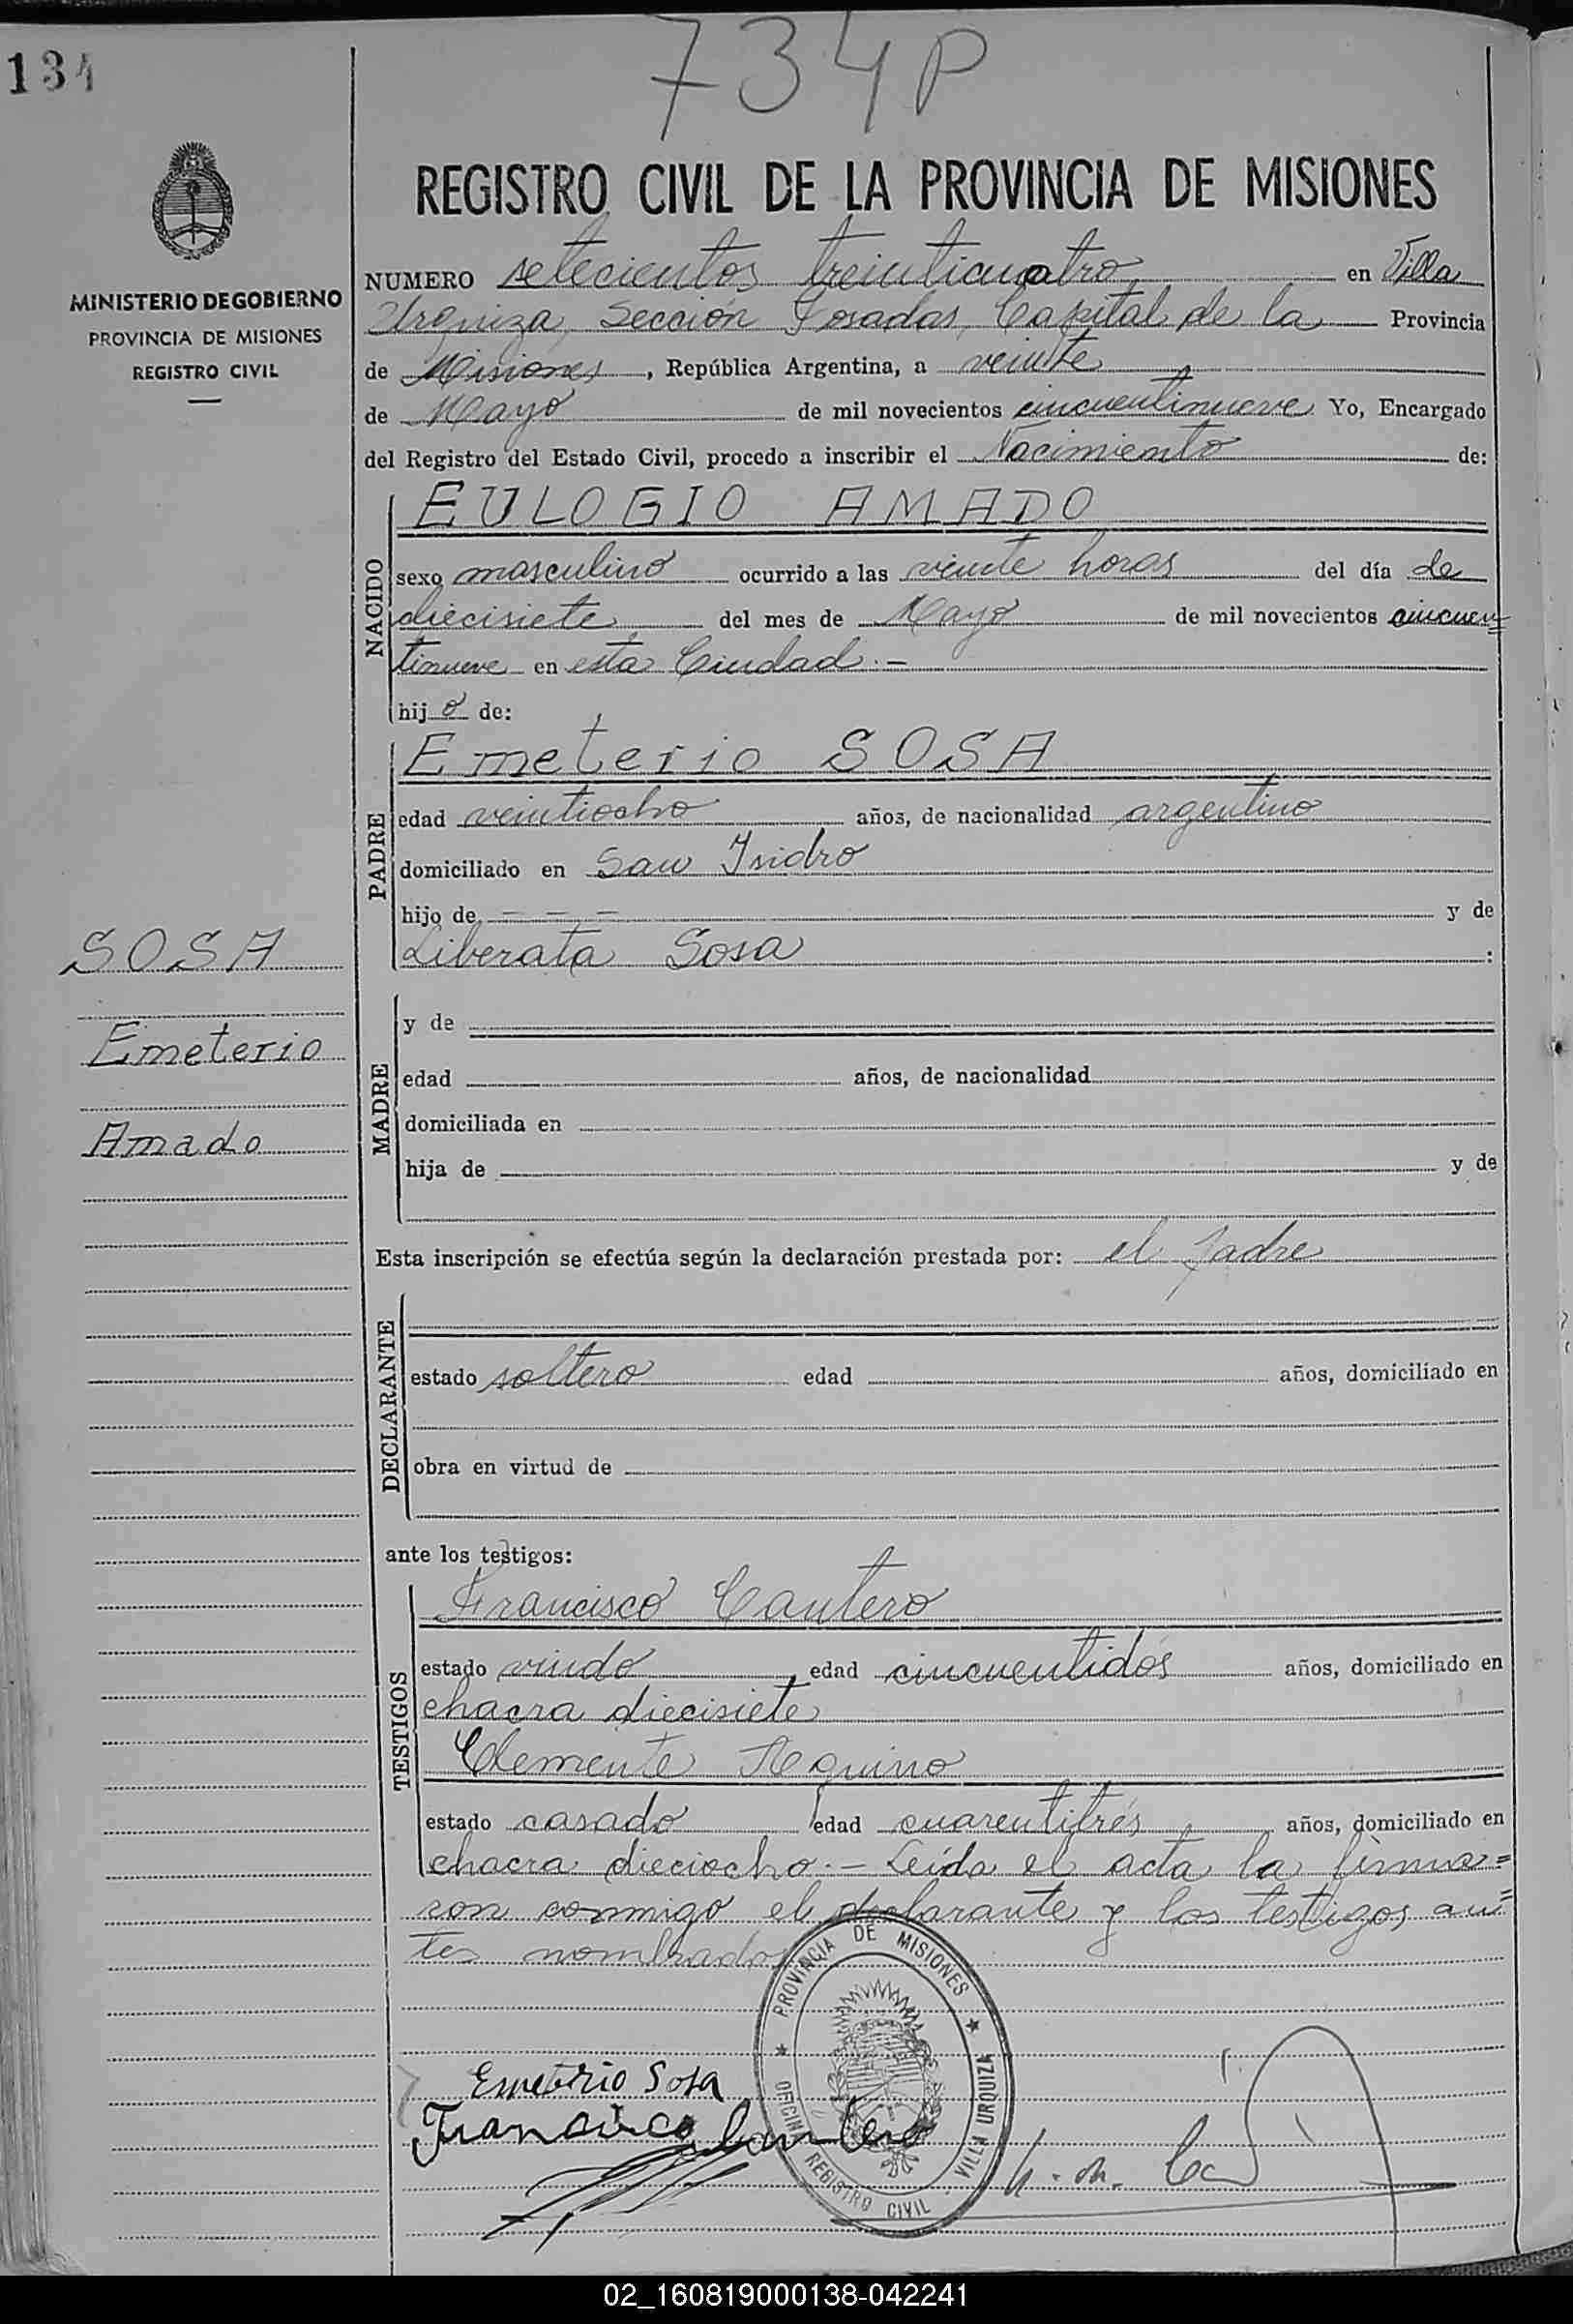 134
734P
MINISTERIO DE GOBIERNO
PROVINCIA DE MISIONES
REGISTRO CIVIL
SOSA
Emeterio
Amado
REGISTRO CIVIL DE LA PROVINCIA DE MISIONES
NUMERO setecientos treinticuatro en Villa
Urquiza, Sección Posadas, Capital de la Provincia
de Misiones, República Argentina, a veinte
de Mayo de mil novecientos cincuentinueve Yo, Encargado
del Registro del Estado Civil, procedo a inscribir el Nacimiento de:
NACIDO
EULOGIO AMADO
sexo masculino ocurrido a las veinte horas del día de
diecisiete del mes de Mayo de mil novecientos cincuen=
tinueve en esta Ciudad.-
hijo de:
PADRE
Emeterio SOSA
edad veintiocho años, de nacionalidad argentino
domiciliado en San Isidro
hijo de - - - y de
Liberata Sosa :
MADRE
y de
edad años, de nacionalidad
domiciliada en
hija de y de
Esta inscripción se efectúa según la declaración prestada por: el padre
DECLARANTE
estado soltero edad años, domiciliado en
obra en virtud de
ante los testigos:
TESTIGOS
Francisco Cantero
estado viudo, edad cincuentidós años, domiciliado en
chacra diecisiete
Clemente Aquino
estado casado edad cuarentitrés años, domiciliado en
chacra dieciocho.- Leída el acta la firma=
ron conmigo el declarante y los testigos an=
tes nombrados
PROVINCIA DE MISIONES
OFICINA REGISTRO CIVIL VILLA URQUIZA
Emeterio Sosa
Francisco Cantero
02_160819000138-042241